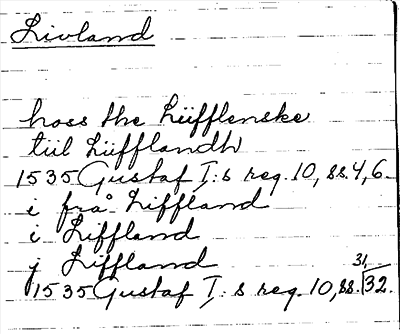 Livland
hoss the Lüfflenske
till Lüfflandh
1535 Gustaf I:s reg. 10, ss. 4, 6.
i frå Liffland
i Liffland
j Liffland
1535 Gustaf I:s reg. 10, ss. 31, 32.